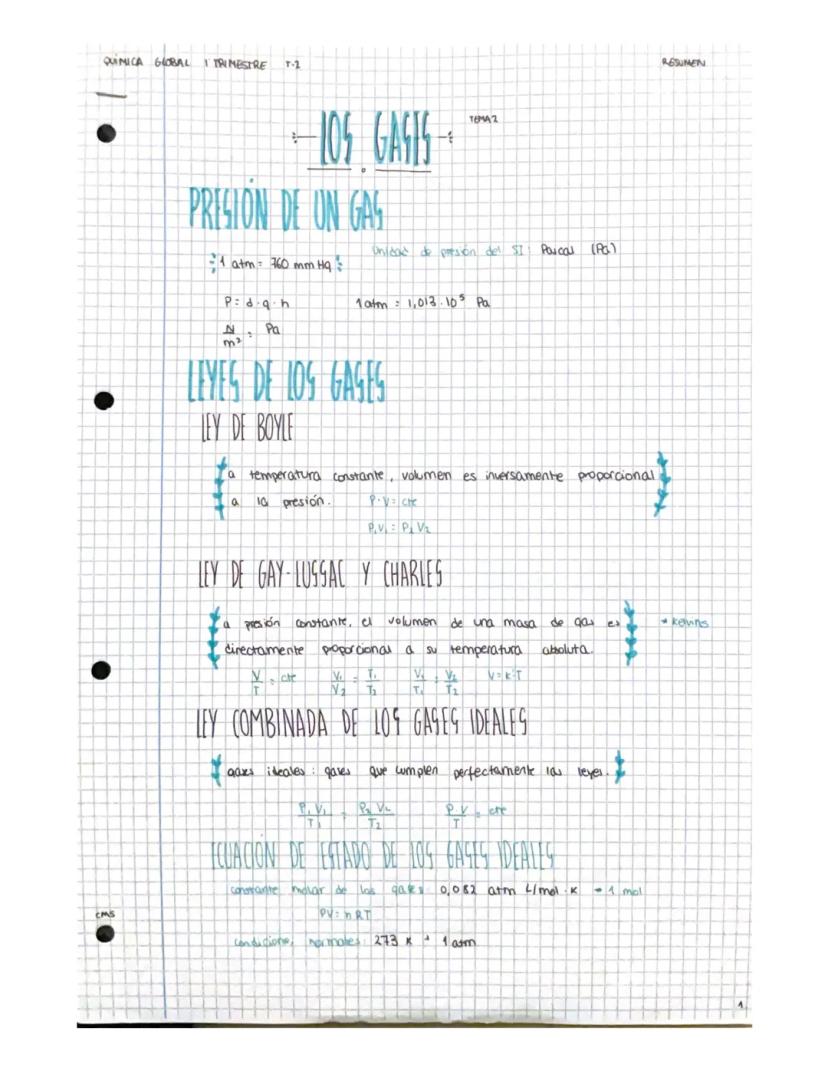 QUÍMICA GLOBAL 1 TRIMESTRE T-2 RESUMEN
LOS GASES TEMA 2
PRESIÓN DE UN GAS
Unidad de presión del SI: Pascal (Pa)
1 atm = 760 mm Hg
P = d · g · h 1 atm = 1,013 · 10⁵ Pa
N/m² = Pa
LEYES DE LOS GASES
LEY DE BOYLE
a temperatura constante, volumen es inversamente proporcional
a la presión. P · V = cte
P₁V₁ = P₂V₂
LEY DE GAY-LUSSAC Y CHARLES
a presión constante, el volumen de una masa de gas es * Kelvins
directamente proporcional a su temperatura absoluta.
V/T = cte V₁/V₂ = T₁/T₂ V₁/T₁ = V₂/T₂ V = K · T
LEY COMBINADA DE LOS GASES IDEALES
gases ideales: gases que cumplen perfectamente las leyes.
P₁V₁/T₁ = P₂V₂/T₂ P.V/T = cte
ECUACIÓN DE ESTADO DE LOS GASES IDEALES
constante molar de los gases 0,082 atm L/mol · K → 1 mol
PV = nRT
CMS
condiciones normales: 273 K + 1 atm
1